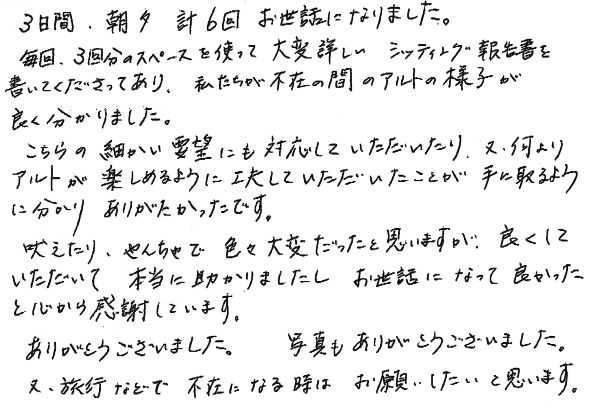 3日間、朝夕 計6回 お世話になりました。
毎回、3回分のスペースを使って 大変詳しい シッティング報告書を
書いてくださってあり、私たちが不在の間のアルトの様子が
良く分かりました。
こちらの 細かい要望にも 対応していただいたり、又、何より
アルトが 楽しめるように工夫していただいたことが 手に取るよう
に分かり ありがたかったです。
吠えたり、やんちゃで 色々大変だったと思いますが、良くして
いただいて 本当に助かりましたし お世話になって 良かった
と心から感謝しています。
ありがとうございました。 写真もありがとうございました。
又、旅行などで 不在になる時は お願いしたいと思います。